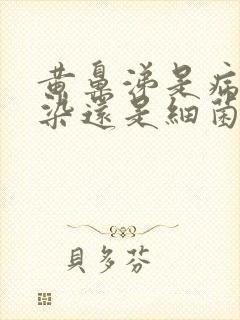 黄鼻涕是病
染還是細菌
貝多芬